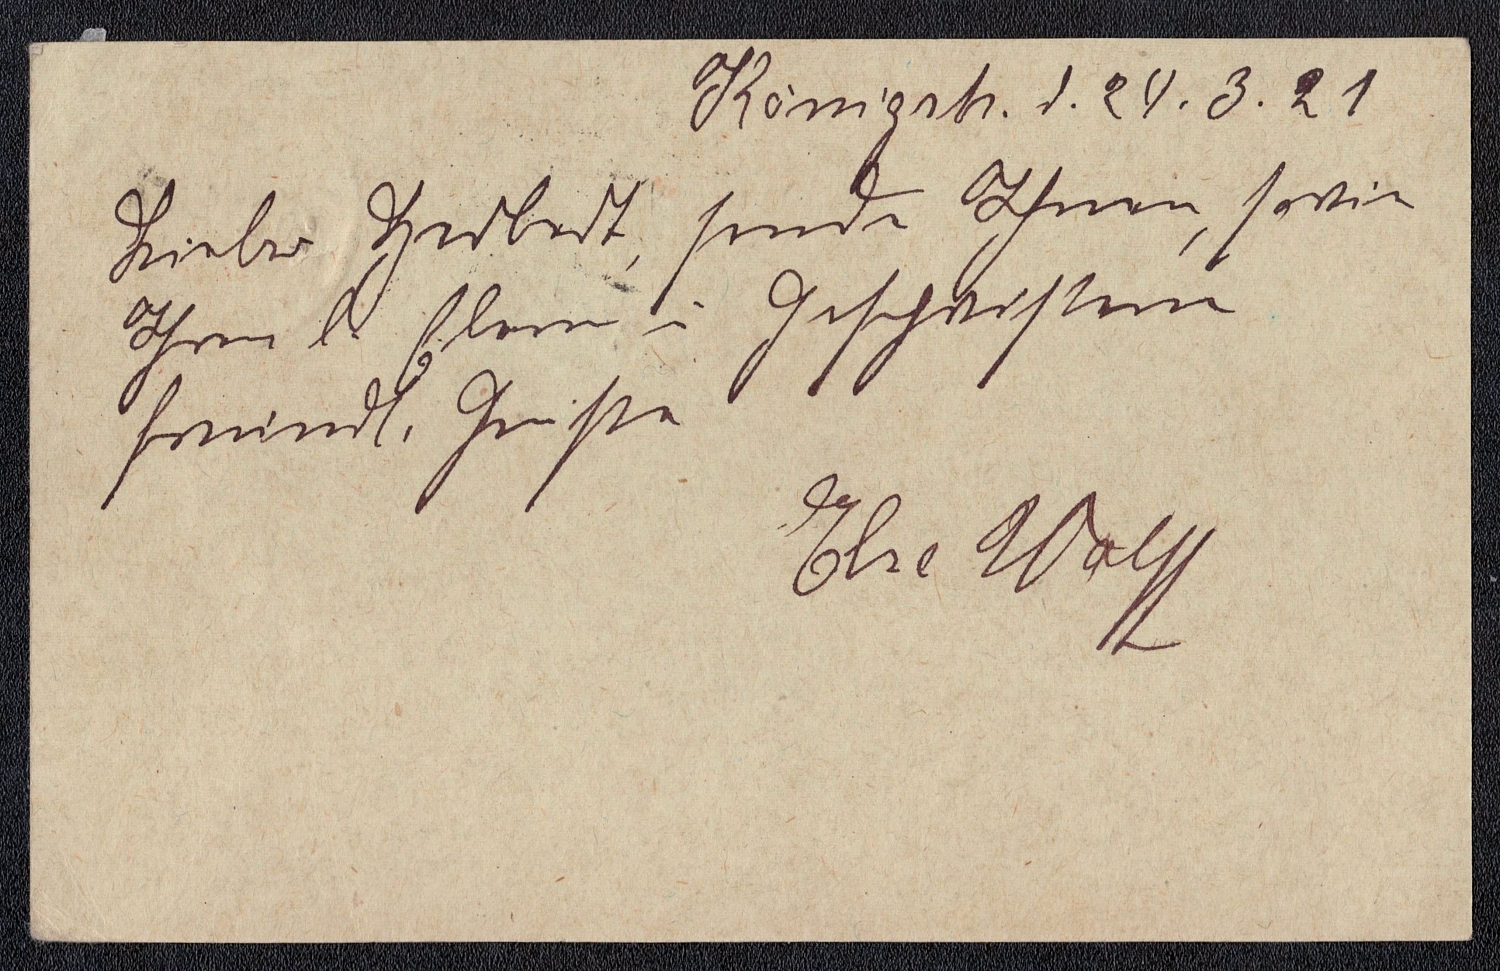 Königstr. d. 24. 3. 21
Lieber Herbert, sende Ihnen, sowie
Ihren l. Eltern u Geschwistern
freundl. Grüße
Else Wolff